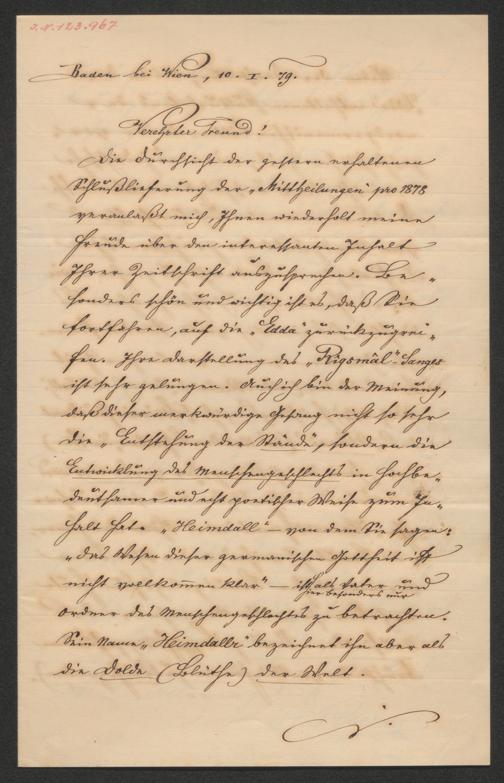 J.N. 123.967
Baden bei Wien, 10. I. 79.
Verehrter Freund!
Die Durchsicht der gestern erhaltenen
Schlußlieferung der „Mittheilungen" pro 1878
veranlaßt mich, Ihnen wiederholt meine
Freude über den interessanten Inhalt
Ihrer Zeitschrift auszusprechen. Be-
sonders schön und wichtig ist es, daß Sie
fortfahren, auf die „Edda" zurückzugrei-
fen. Ihre Darstellung des „Rigsmâl"-Sanges
ist sehr gelungen. Auch ich bin der Meinung,
daß dieser merkwürdige Gesang nicht so sehr
die „Entstehung der Stände", sondern die
Entwicklung des Menschengeschlechts in hochbe-
deutsamer und echt poetischer Weise zum In-
halt hat. „Heimdall" – von dem Sie sagen:
„das Wesen dieser germanischen Gottheit ist
nicht vollkommen klar" – ist als Vater und
hier besonders nur
Ordner des Menschengeschlechtes zu betrachten.
Sein Name „Heimdallr" bezeichnet ihn aber als
die Dolde (Blüthe) der Welt.